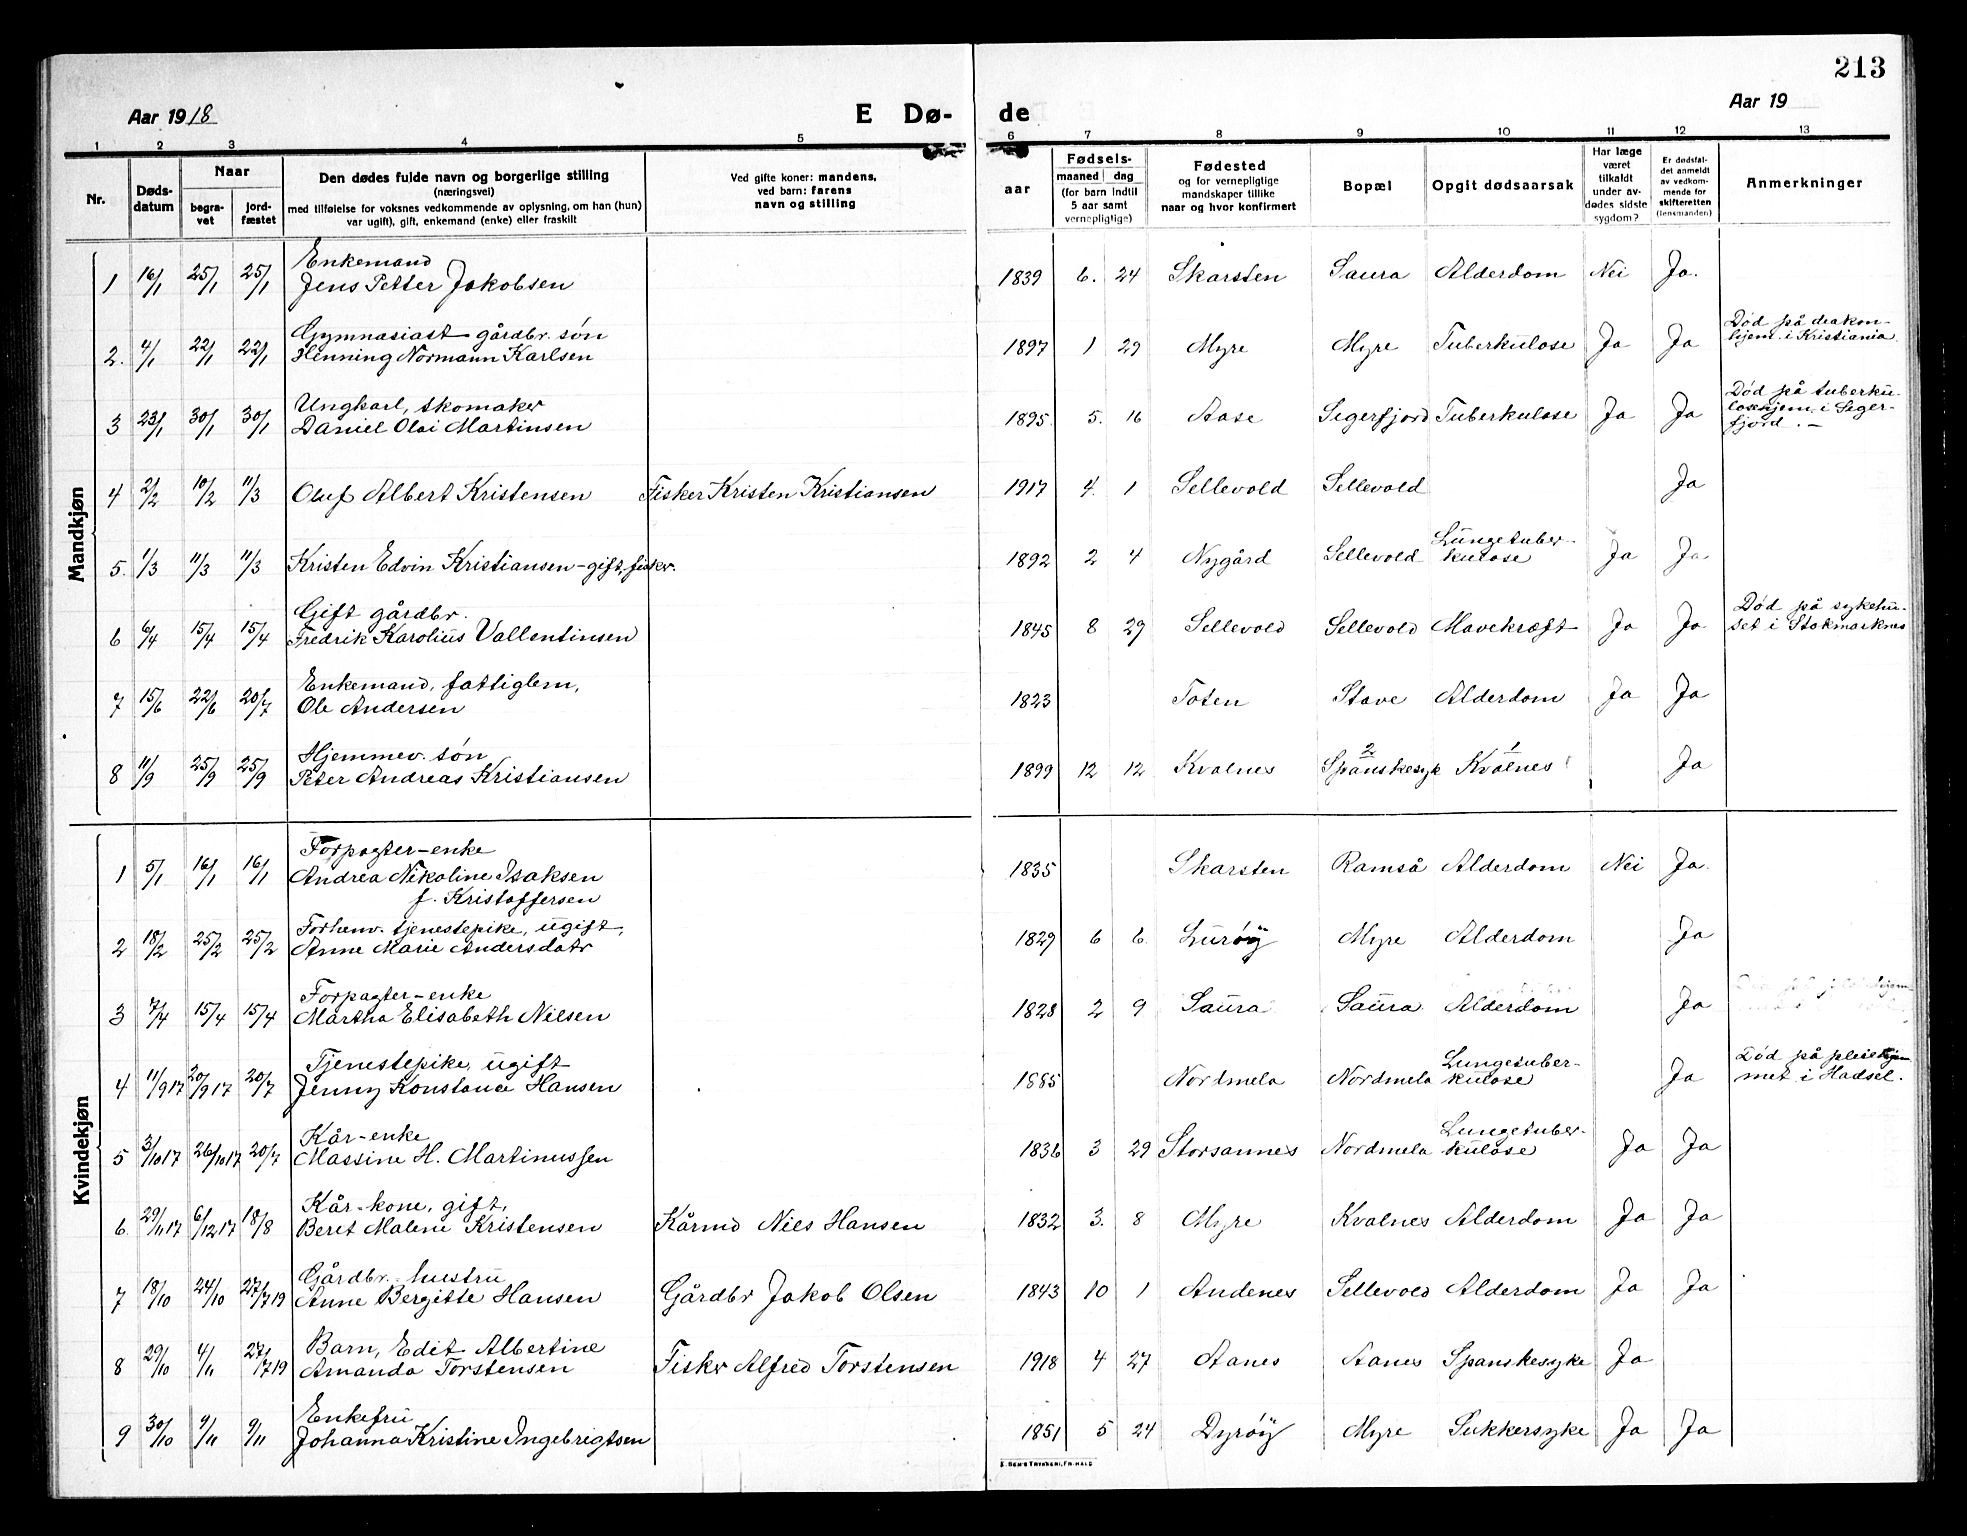 213
Aar 1918 E Dø- de Aar 19
1 2 3 4 5 6 7 8 9 10 11 12 13
Nr. Døds-datum Naar begra-vet jord-fæstet Den dødes fulde navn og borgerlige stilling (næringsvei) med tilføielse for voksnes vedkommende av oplysning, om han (hun) var ugift), gift, enkemand (enke) eller fraskilt Ved gifte koner: mandens, ved barn: farens navn og stilling aar Fødsels- maaned dag (for barn indtil 5 aar samt vernepligtige) Fødested og for vernepligtige mandskaper tillike naar og hvor konfirmert Bopæl Opgit dødsaarsak Har læge været tilkaldt under av-dødes sidste sygdom? Er dødsfal-det anmeldt av vedkom-mende for skifteretten (lensmanden) Anmerkninger
Mandkjøn
1 16/1 25/1 25/1 Enkemand
Jens Petter Jakobsen 1839 6. 24 Skarsten Saura Alderdom Nei Ja.
2. 4/1 22/1 22/1 Gymnasiast gårdbr. søn
Henning Normann Karlsen 1897 1 29 Myre Myre Tuberkulose Ja Ja Død på diakon-
hjem. i Kristiania
3 23/1 30/1 30/1 Ungkarl, skomaker
Daniel Olai Martinsen 1895. 5. 16 Aase Segerfjord Tuberkulose Ja Ja Død på tuberku-
losehjem. i Seger-
fjord. –
4 2/2 10/2 11/3 Oluf Albert Kristensen Fisker Kristen Kristiansen 1917 4. 1 Sellevold Sellevold Ja
5. 1/3 11/3 11/3 Kristen Edvin Kristiansen – gift, fisker. 1892 2 4 Nygård Sellevold Lungetuber-
kulose Ja Ja
6 6/4 15/4 15/4 Gift gårdbr.
Fredrik Karolius Vallentinsen 1845 8 29 Sellevold Sellevold Mavekræft Ja Ja Død på sykehu-
set i Stokmarknes
7 15/6 22/6 20/7 Enkemand, fattiglem,
Ole Andersen 1823 Toten Stave Alderdom Ja Ja
8 11/9 25/9 25/9 Hjemmev. søn
Peter Andreas Kristiansen 1899 12 12 Kvalnes 2 Spanskesyk 1 Kvalnes Ja
Kvindekjøn
1 5/1 16/1 16/1 Forpagter-enke
Andrea Nikoline Isaksen
f. Kristoffersen 1835 Skarsten Ramså Alderdom Nei Ja.
2 18/2 25/2 25/2 Forhenv. tjenestepike, ugift,
Anne Marie Andersdatr 1829 6 6. Lurøy Myre Alderdom Ja
3 7/4 15/4 15/4 Forpagter-enke
Martha Elisabeth Nilsen 1828 2 9 Saura Saura Alderdom Ja
4 11/9 17 20/9 17 20/7 Tjenestepike, ugift
Jenny Konstance Hansen 1885 Nordmela Nordmela Lungetuber-
kulose Ja Død på pleiehjem
met i Hadsel.
5 3/10 17 26/10 17 20/7 Kår-enke
Massine H. Martinussen 1836 3 29 Storsannes Nordmela Lungetuber-
kulose Ja Ja
6. 29/11 17 6/12 17 18/8 Kår-kone, gift,
Beret Malene Kristensen Kårmd Nils Hansen 1832 3. 8 Myre Kvalnes Alderdom Ja Ja
7 18/10 24/10 27/7 19 Gårdbr. hustru
Anne Bergitte Hansen Gårdbr Jakob Olsen 1843 10 1 Andenes Sellevold Alderdom Ja Ja
8 29/10 4/11 27/7 19 Barn, Edit Albertine
Amanda Torstensen Fisker Alfred Torstensen 1918 4 27 Aanes Aanes Spanskesyke Ja
9 30/10 9/11 9/11 Enkefru
Johanna Kristine Ingebregtsen 1851 5 24 Dyrøy Myre Sukkersyke Ja Ja